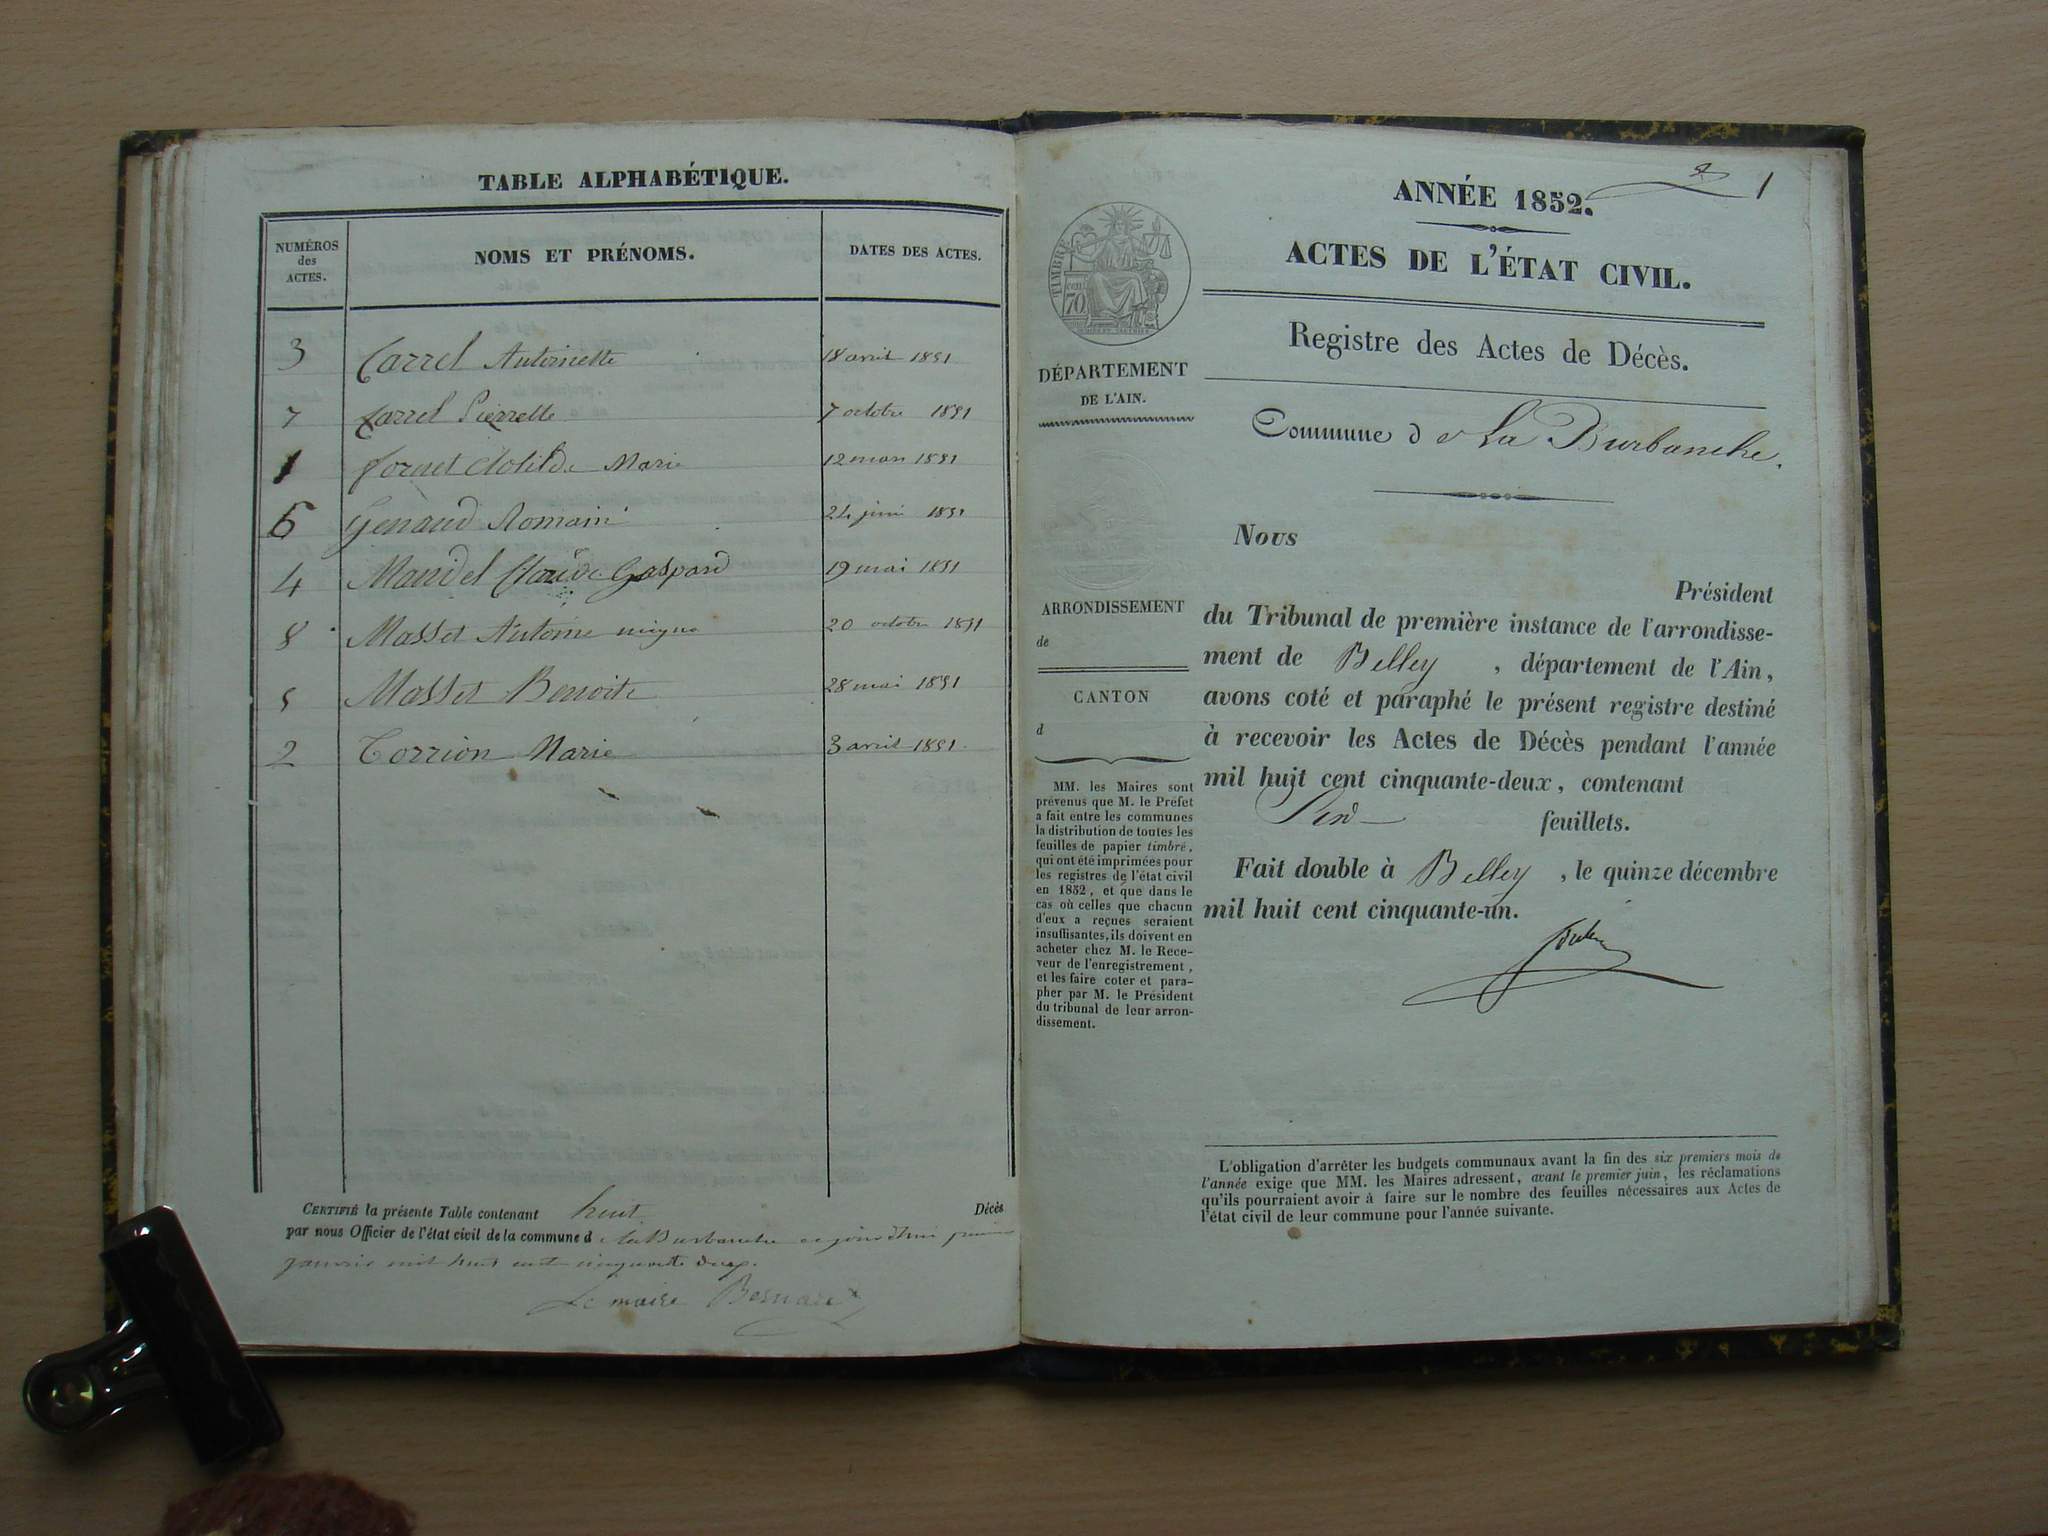 TABLE ALPHABÉTIQUE.
NUMÉROS des ACTES. NOMS ET PRÉNOMS. DATES DES ACTES.
3 Carrel Antoinette 18 avril 1851
7 Carrel Pierrette 7 octobre 1851
1 Fornet Clotilde Marie 12 mars 1851
6 Genaud Romain 24 juin 1851
4 Mandel Claude Gaspard 19 mai 1851
8 Masset Antoine 20 octobre 1851
5 Masset Benoite 28 mai 1851
2 Torrion Marie 3 avril 1851
CERTIFIÉ la présente Table contenant huit Décès
par nous Officier de l'état civil de la commune d e La Burbanche ce jourd'hui premier
janvier mil huit cent cinquante deux.
Le maire Besnard
1
ANNÉE 1852.
ACTES DE L'ÉTAT CIVIL.
Registre des Actes de Décès.
Commune d e La Burbanche.
TIMBRE
cen
70
DÉPARTEMENT
DE L'AIN.
ARRONDISSEMENT
de
CANTON
d
MM. les Maires sont
prévenus que M. le Préfet
a fait entre les communes
la distribution de toutes les
feuilles de papier timbré,
qui ont été imprimées pour
les registres de l'état civil
en 1852, et que dans le
cas où celles que chacun
d'eux a reçues seraient
insuffisantes, ils doivent en
acheter chez M. le Rece-
veur de l'enregistrement,
et les faire coter et para-
pher par M. le Président
du tribunal de leur arron-
dissement.
Nous
Président
du Tribunal de première instance de l'arrondisse-
ment de Belley , département de l'Ain,
avons coté et paraphé le présent registre destiné
à recevoir les Actes de Décès pendant l'année
mil huit cent cinquante-deux, contenant
feuillets.
Fait double à Belley , le quinze décembre
mil huit cent cinquante-un.
L'obligation d'arrêter les budgets communaux avant la fin des six premiers mois de
l'année exige que MM. les Maires adressent, avant le premier juin, les réclamations
qu'ils pourraient avoir à faire sur le nombre des feuilles nécessaires aux Actes de
l'état civil de leur commune pour l'année suivante.